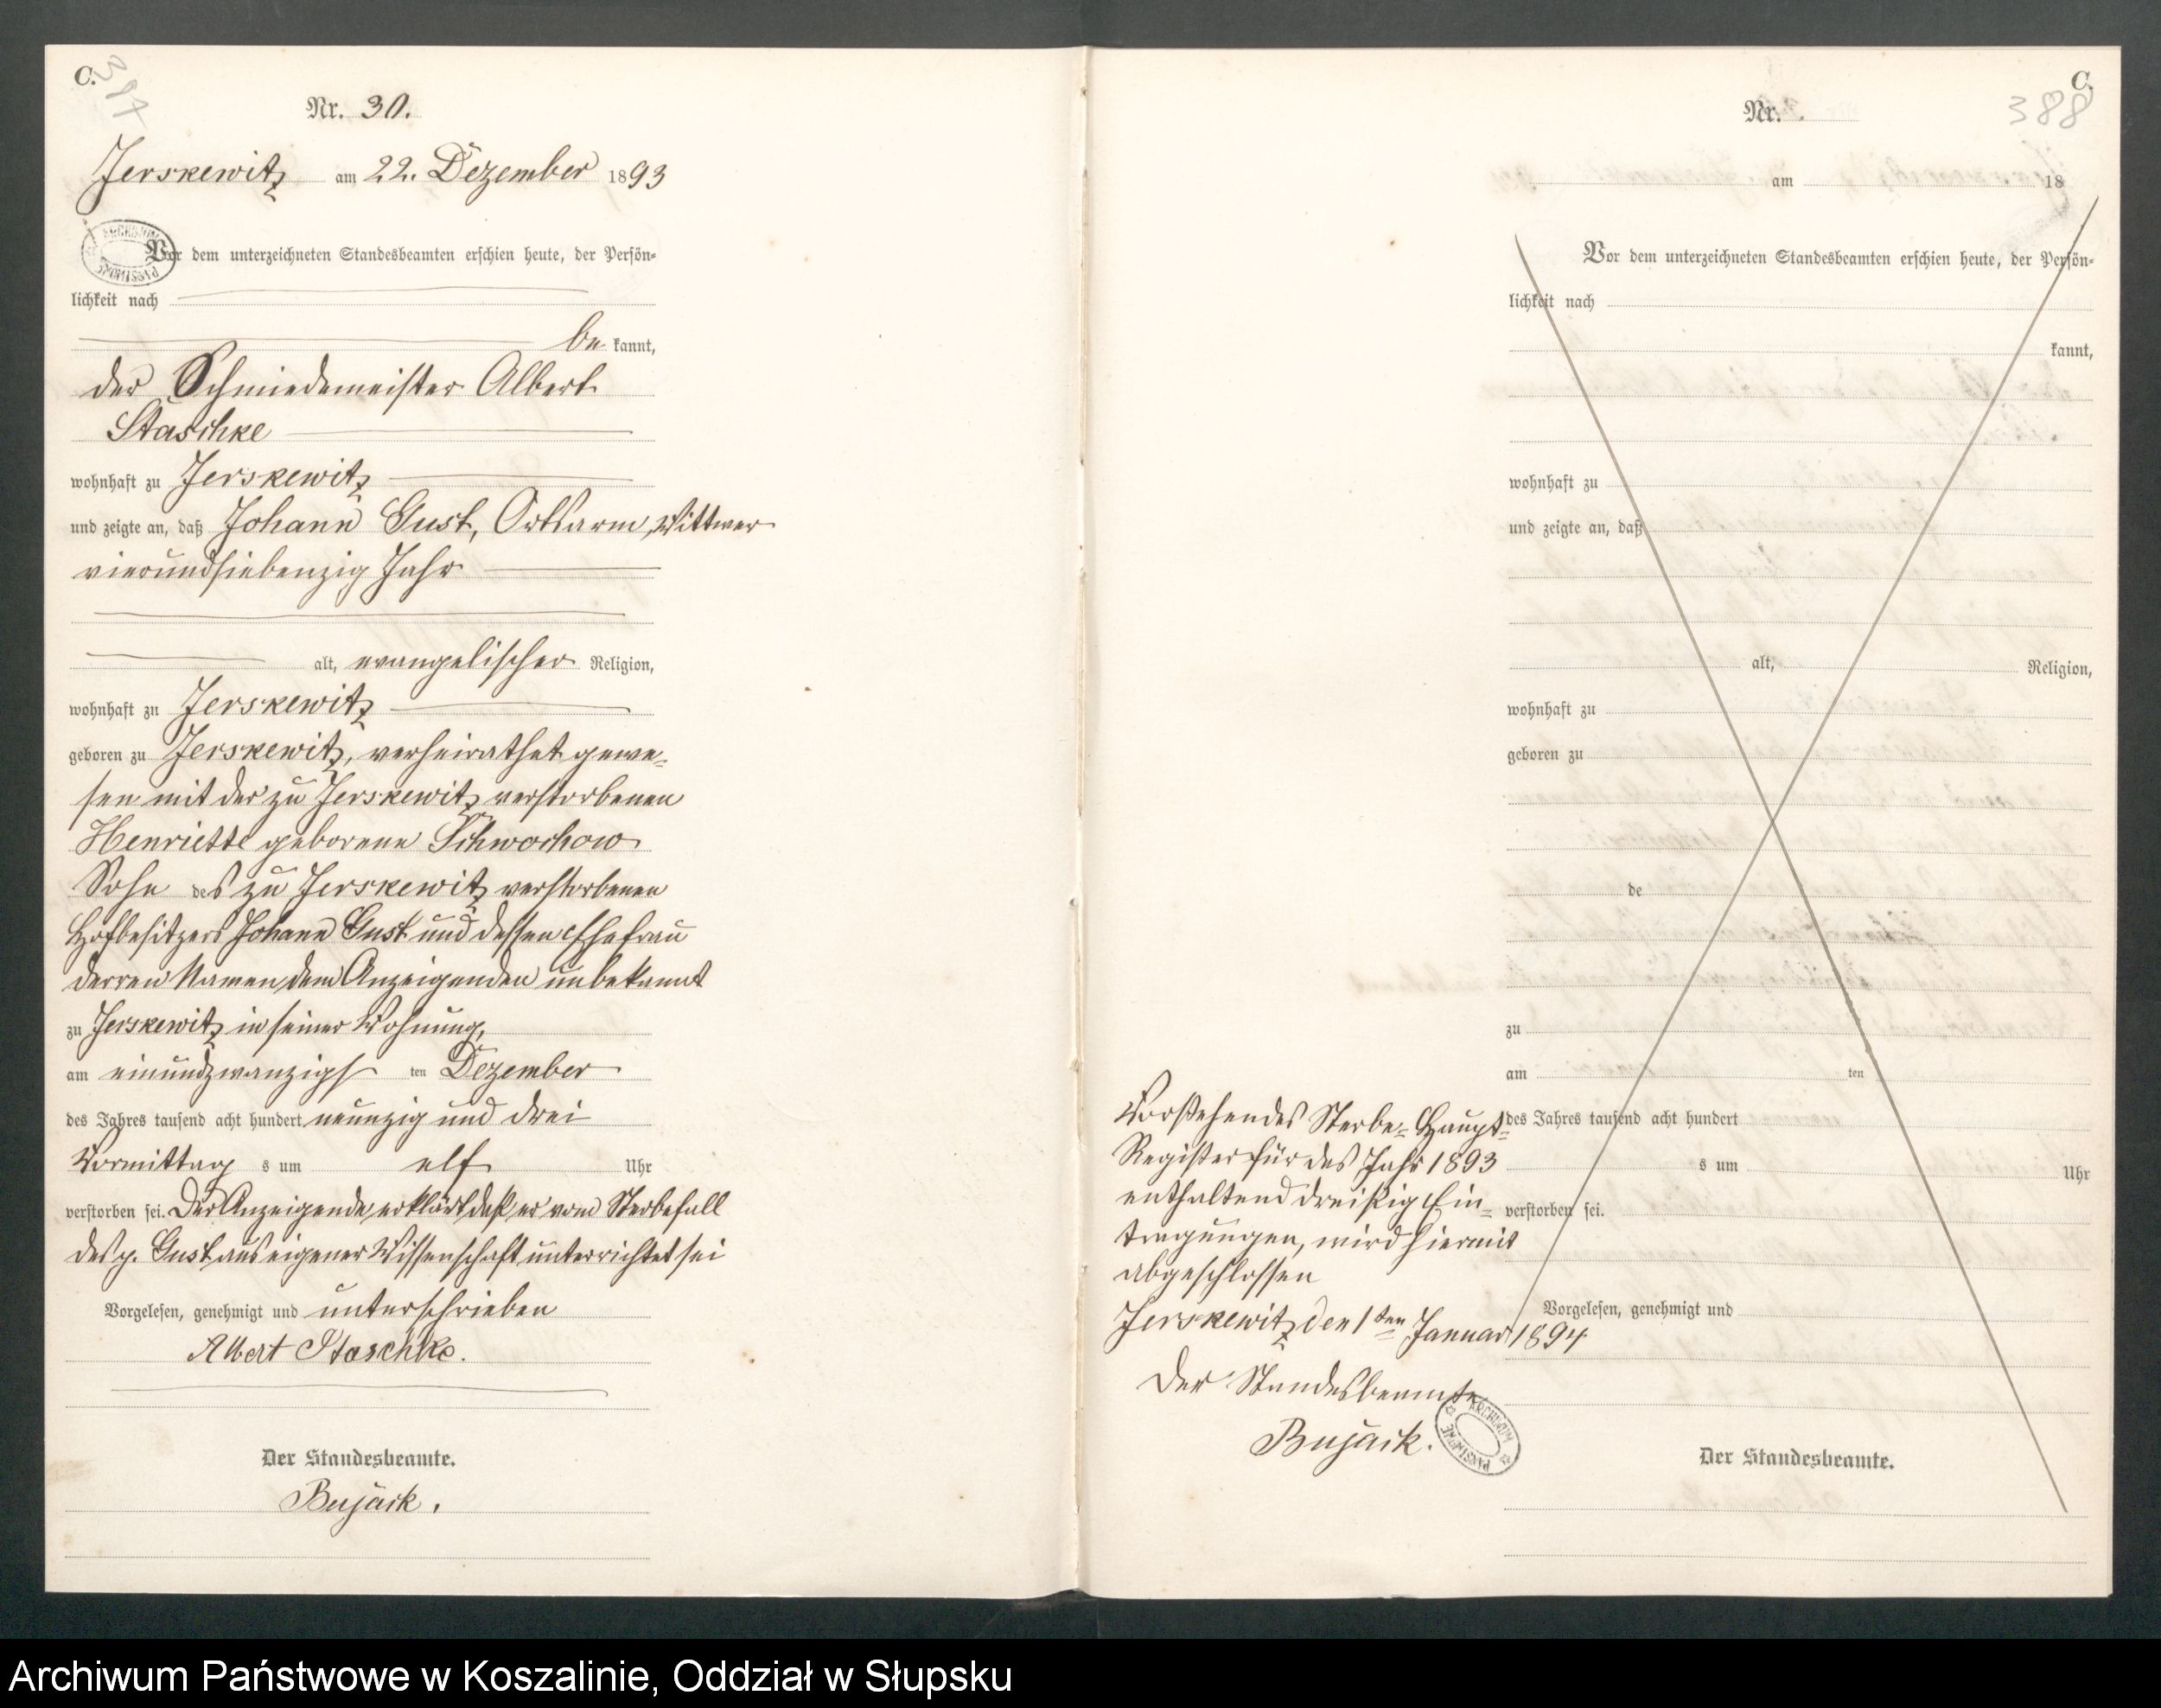 C.
387
Nr. 30.
Jerskewitz am 22. Dezember 1893
Vor dem unterzeichneten Standesbeamten erschien heute, der Persön-
lichkeit nach
be kannt,
der Schmiedemeister Albert
Staschke
wohnhaft zu Jerskewitz
und zeigte an, daß Johann Gust, Ortsarm, Wittwer
vierundsiebenzig Jahr
alt, evangelischer Religion,
wohnhaft zu Jerskewitz
geboren zu Jerskewitz, verheirathet gewe-
sen mit der zu Jerskewitz verstorbenen
Henriette geborene Schwochow
Sohn des zu Jerskewitz verstorbenen
Hofbesitzers Johann Gust und dessen Ehefrau
derren Namen dem Anzeigenden unbekannt
zu Jerskewitz in seiner Wohnung,
am einundzwanzigs ten Dezember
des Jahres tausend acht hundert neunzig und drei
Vormittag s um elf Uhr
verstorben sei. Der Anzeigende erklärt daß er vom Sterbefall
des p. Gust aus eigener Wissenschaft unterrichtet sei
Vorgelesen, genehmigt und unterschrieben
Albert Staschke.
Der Standesbeamte.
Bujack.
C.
388
Nr.
am 18
Vor dem unterzeichneten Standesbeamten erschien heute, der Persön-
lichkeit nach
kannt,
wohnhaft zu
und zeigte an, daß
alt, Religion,
wohnhaft zu
geboren zu
de
zu
am ten
des Jahres tausend acht hundert
s um Uhr
verstorben sei.
Vorgelesen, genehmigt und
Der Standesbeamte.
Vorstehendes Sterbe-Haupt-
Register für das Jahr 1893
enthaltend dreißig Ein-
tragungen, wird hiermit
abgeschlossen
Jerskewitz den 1ten Januar 1894
Der Standesbeamte
Bujack.
ARCHIWUM PAŃSTWOWE
Archiwum Państwowe w Koszalinie, Oddział w Słupsku